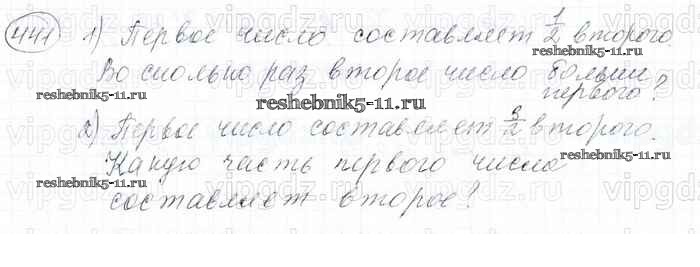 441 1) Первое число составляет 1/2 второго
Во сколько раз второе число больше
первого?
2) Первое число составляет 3/2 второго.
Какую часть первого числа
составляет второе?
reshebnik5-11.ru
reshebnik5-11.ru
reshebnik5-11.ru
reshebnik5-11.ru
reshebnik5-11.ru